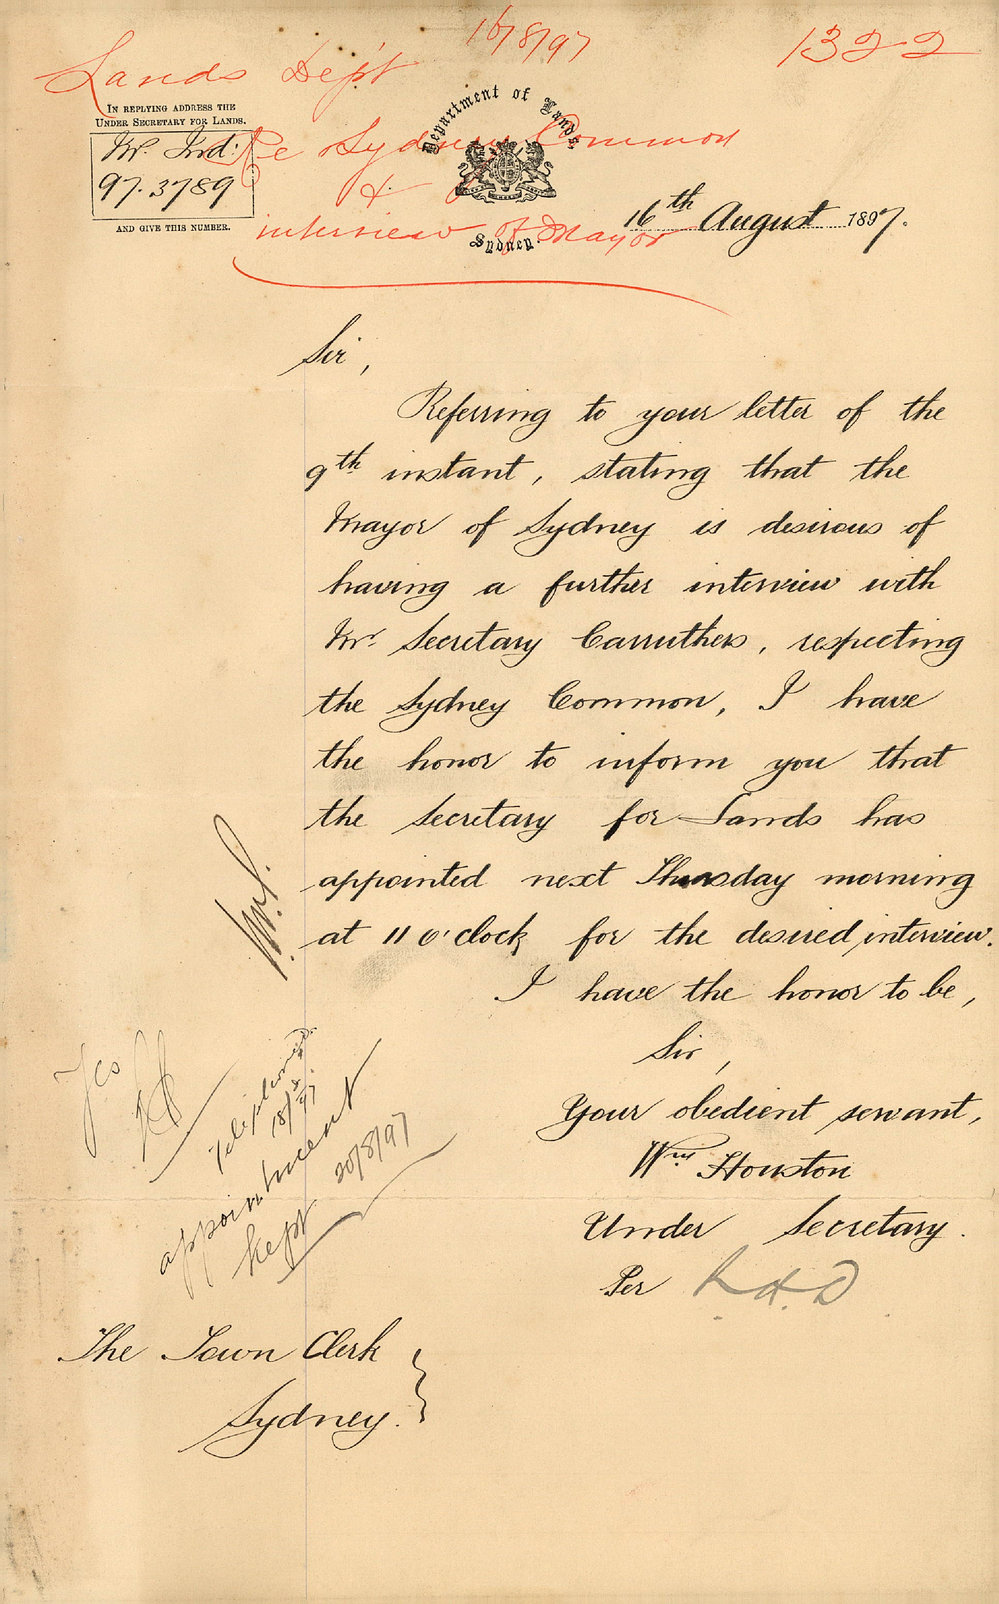 Lands Dep't 16/8/97 1322
IN REPLYING ADDRESS THE
UNDER SECRETARY FOR LANDS.
97.3789
AND GIVE THIS NUMBER.
Department of Lands,
Sydney.
Re Sydney Common
&
interview of Mayor
16th August 1897.
Sir,
Referring to your letter of the
9th instant, stating that the
Mayor of Sydney is desirous of
having a further interview with
Mr. Secretary Carruthers, respecting
the Sydney Common, I have
the honor to inform you that
the Secretary for Lands has
appointed next Thursday morning
at 11 o'clock for the desired interview.
I have the honor to be,
Sir,
Your obedient servant,
Wm Houston
Under Secretary.
Per
Yes
Telephoned
18/8/97
appointment
kept 20/8/97
The Town Clerk
Sydney.